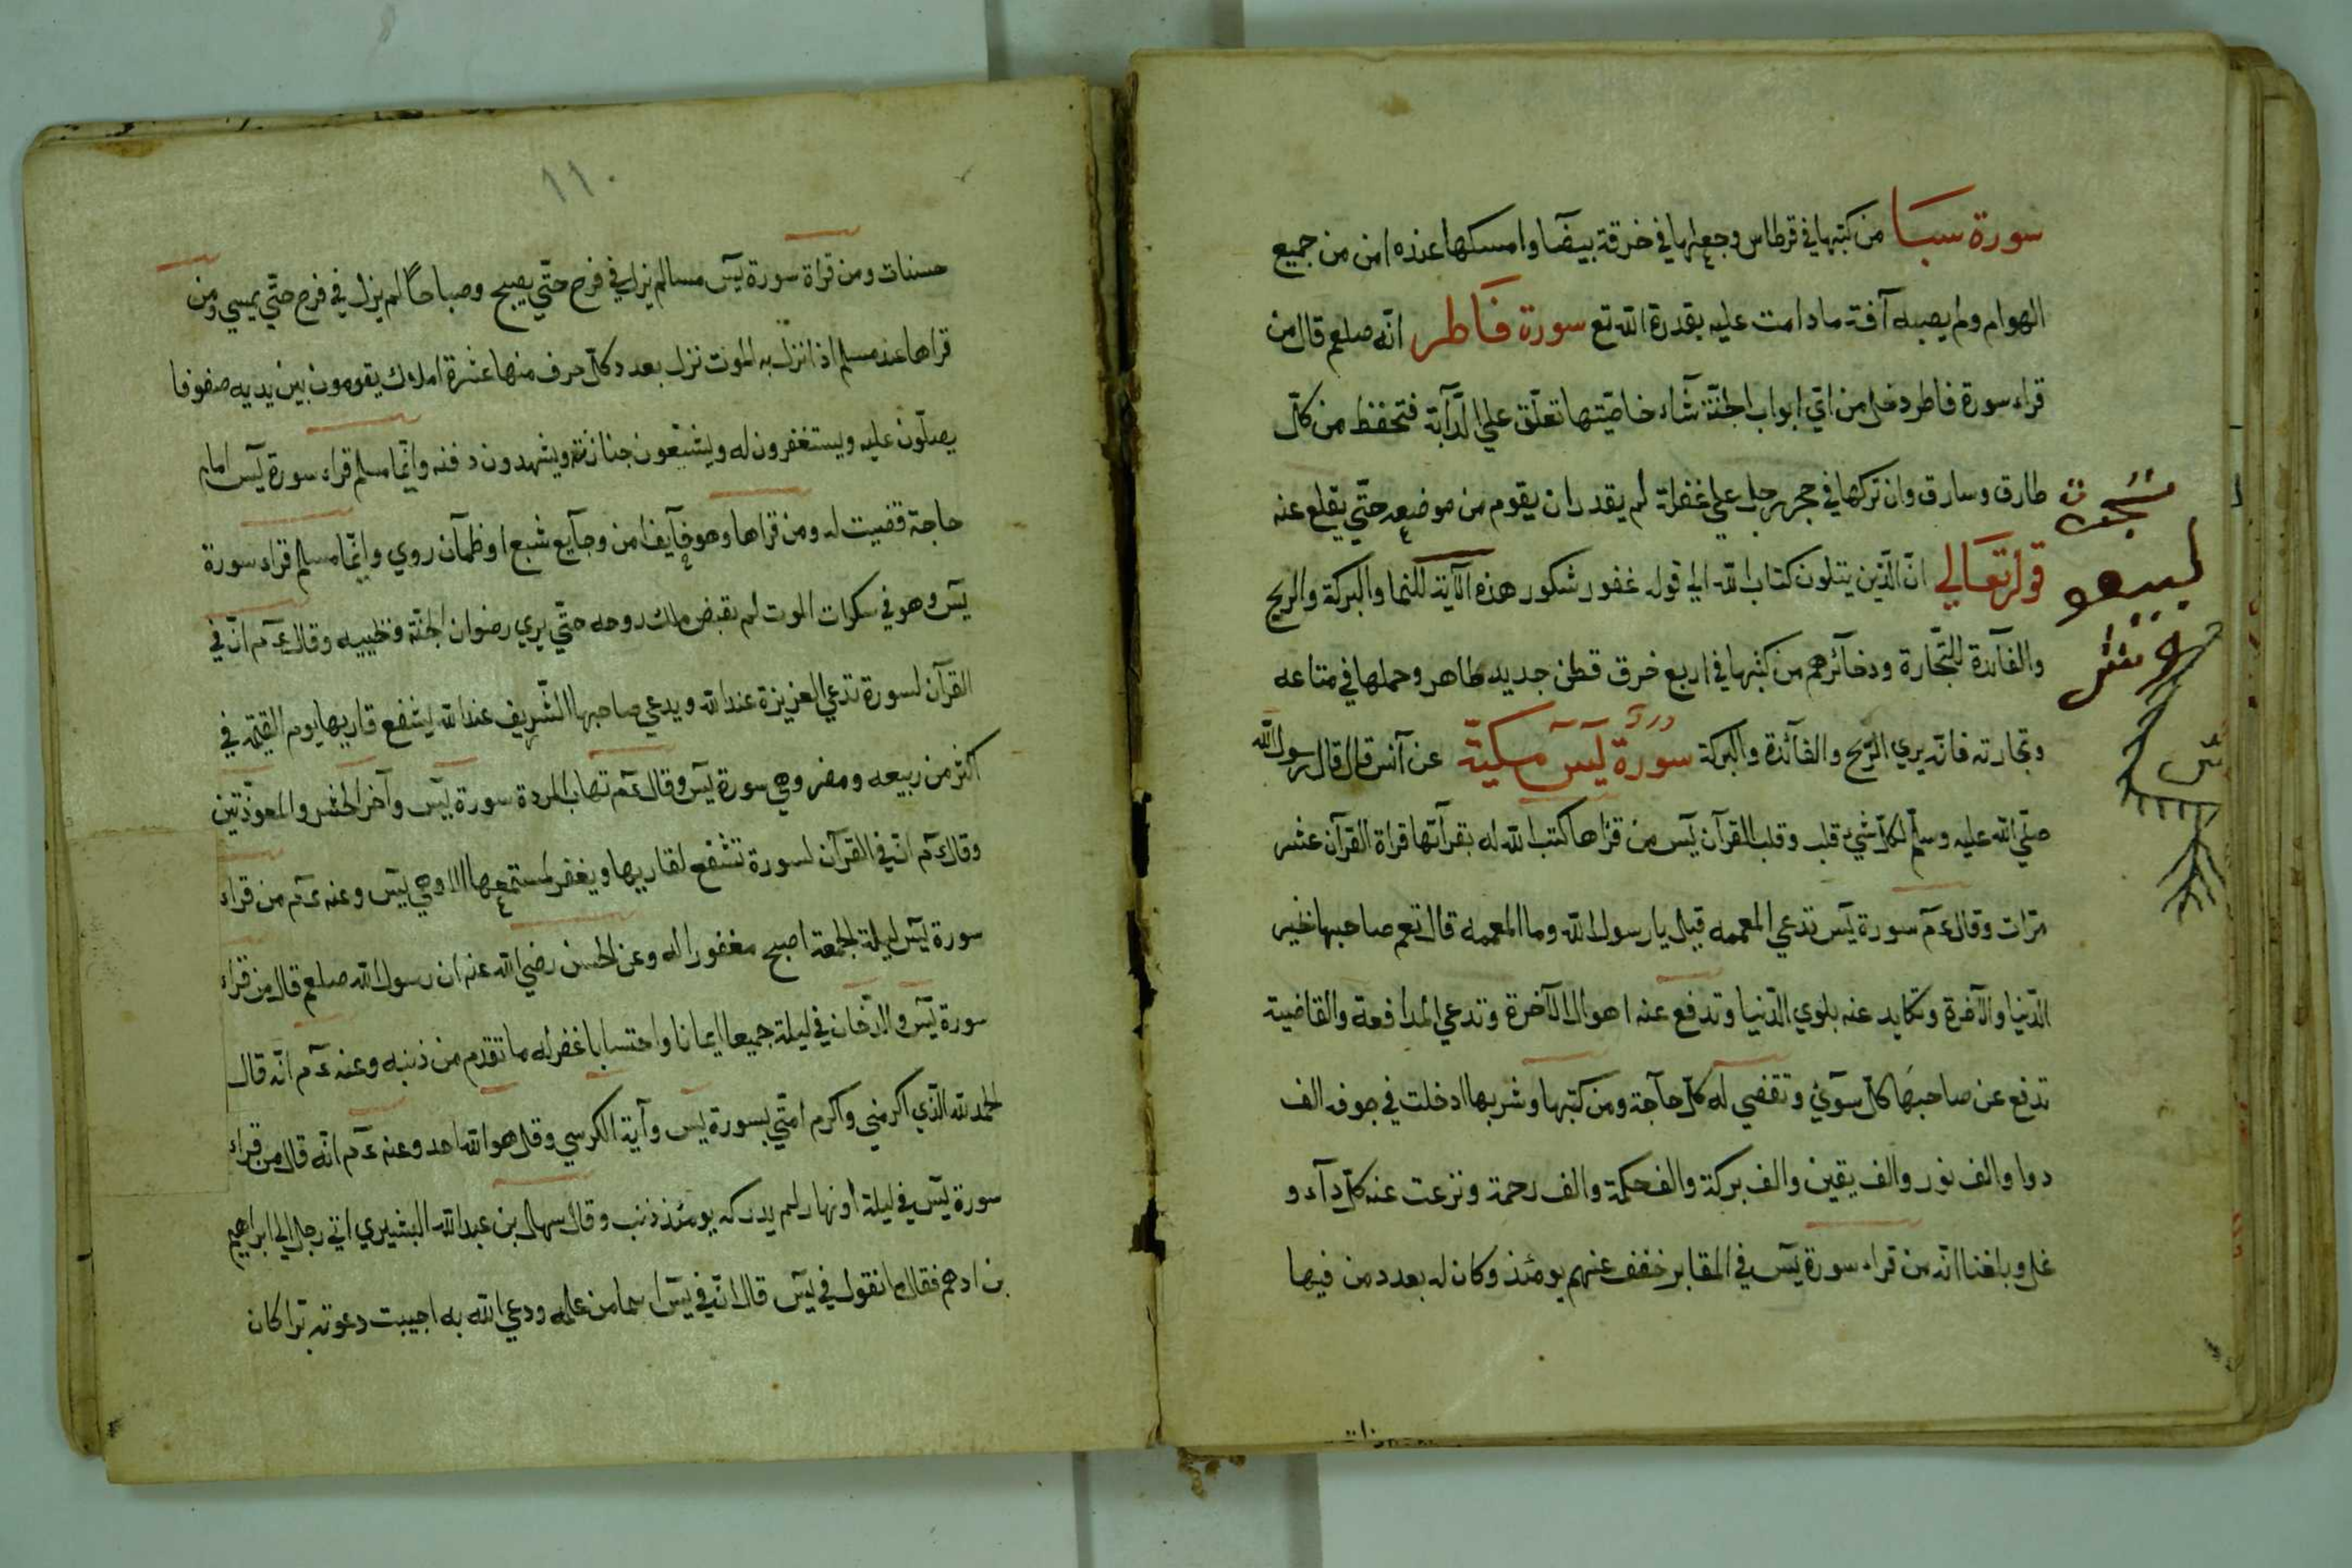 سورة سبا من كتبها في قرطاس وجعلها في خرقة بيضا وامسكها عنده امن من جميع
الهوام ولم يصبه آفة ما دامت عليه بقدرة الله تع سورة فاطر انّه صلعم قال من
قراء سورة فاطر دخل من ايّ ابواب الجنّة شآء خاصّيتها تعلّق علي الدّآبّة فتحفظ من كلّ
طارق وسارق وان تركها في حجر رجل علي غفلة لم يقدر ان يقوم من موضعه حتّي يقلع عنه
قوله تعالي انّ الّذين يتلون كتاب الله الي قوله غفور شكور هذه الآية للنما والبركة والربح
والفآئدة للتّجارة وذخآئرهم من كتبها في اربع خرق قطن جديد طاهر وحملها في متاعه
وتجارته فانّه يري الرّبح والفآئدة والبركة سورة يٓس مكيّة عن آنس قال قال رسول الله
صلّي الله عليه وسلّم لكلّ شيء قلب وقلب القرآن يٓس من قراها كتب الله له بقرآتها قراة القرآن عشر
مرّات وقال ءم سورة يٓس تدعي المعممه قيل يا رسول الله وما المعممه قال تعم صاحبها خير
الدّنيا والآخرة وتكابد عنه بلوي الدّنيا وتدفع عنه اهوال الآخرة وتدعي المدافعة والقاضية
تدفع عن صاحبها كلّ سوٓئ وتقضي له كلّ حآجة ومن كتبها وشربها ادخلت في جوفه الف
دوا والف نور والف يقين والف بركة والف حكمة والف رحمة ونزعت عنه كلّ دآء و
غل وبلغنا انّه من قراء سورة يٓس في المقابر خفف عنهم يومئذ وكان له بعدد من فيها
١١٠
حسنات ومن قراة سورة يٓس مسا لم يزل في فرح حتّي يصبح وصباحًا لم يزل في فرح حتّي يمسي ومن
قراها عند مسلم اذا نزل به الموت نزل بعدد كلّ حرف منها عشرة املاك يقومون بين يديه صفوفا
يصلّون عليه ويستغفرون له ويشيّعون جنازته ويشهدون دفنه وايّما مسلم قراء سورة يٓس امام
حاجة قضيت له ومن قراها وهو خآيف امن وجآيع شبع او ظمآن روي وايّما مسلم قراء سورة
يٓس وهو في سكرات الموت لم يقبض ملك روحه حتّي يري رضوان الجنّة وقال ءم انّ في
القرآن لسورة تدعي العزيزة عند الله ويدعي صاحبها الشّريف عند الله يشفع قاريها يوم القيمة في
اكثر من ربيعه ومضر وهي سورة يٓس وقال ءم تهاب المردة سورة يٓس وآخر الحشر والمعوّذتين
وقال ءم انّ في القرآن لسورة تشفع لقاريها ويغفر لمستمعها الا وهي يٓس وعنه ءم من قراء
سورة يٓس ليلة الجمعة اصبح مغفورا له وعن الحسن رضي الله عنه ان رسول الله صلعم قال من قراء
سورة يٓس والدّخان في ليلة جميعا ايمانا واحتسابا غفر له ما تقدّم من ذنبه وعنه ءم انّه قال
الحمد لله الّذي اكرمني واكرم امتّي بسورة يٓس وآية الكرسي وقل هو الله احد وعنه ءم انّه قال من قراء
سورة يٓس في ليلة او نهار لم يدركه يومئذ ذنب وقال سهل بن عبد الله اتي رجل الي ابراهيم
بن ادهم فقال ما تقول في يٓس قال انّ في يٓس اسما من علمه ودعي الله به اجيبت دعوته برّا كان